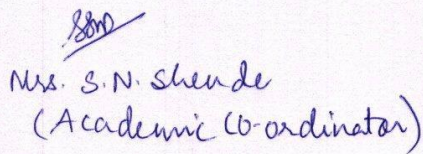 Mrs. S. N. Shende
(Academic Co-ordinator)